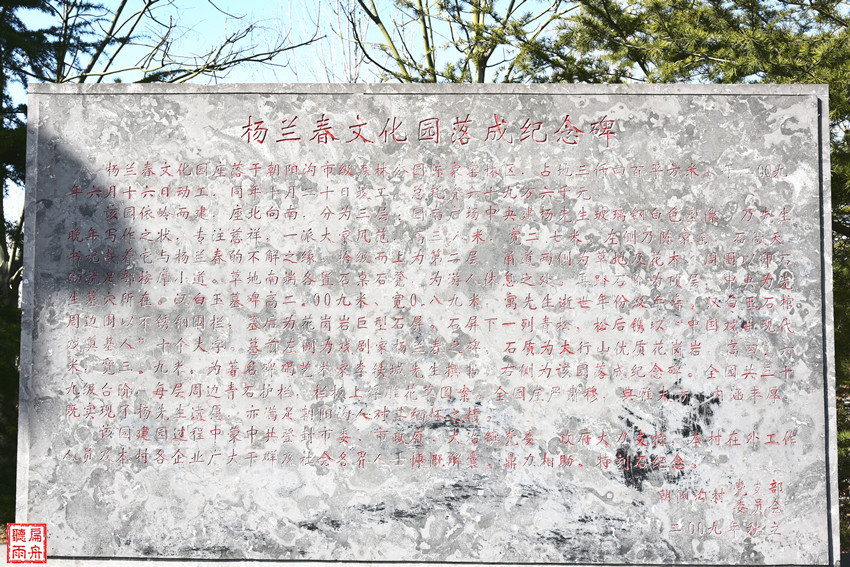 杨兰春文化园落成纪念碑
杨兰春文化园座落于朝阳沟市级森林公园 占地三仟 百平方米 二〇〇九
年六月十六日动工 同年十月三十日竣工 总耗资六十九万六千元
该园依岭而建 座北向南 分为三层 广场中央建杨先生玻璃钢白色塑像 乃先生
晚年写作之状 专注慈祥 一派大家风范 高三 八米 宽二 七米 左侧乃陈 石
它与杨兰春的不解之缘 拾级而上为第二层 甬道两侧为草地及花木 周围以
按摩小道 草地南端各置石桌石凳 为游人休息之处 再 石阶为顶层 中央为先
生墓穴所在 汉白玉墓碑高二 〇〇九米 宽〇 八九米 寓先生逝世年份及年寿
周边围以不锈钢围栏 墓后为花岗岩巨型石屏 石屏下一列青松 松后镌以 中国戏曲现代
戏奠基人 十个大字 墓前左侧为戏剧家杨兰春之碑 石质为大行山优质花岗岩
米 宽三 九米 为著名碑碣艺术家李铁城先生撰 右侧为该园落成纪念碑 全园共三十
九级台阶 每层周边青石护栏 栏板上 花草图案 全园庄严肃穆 典雅大方 内涵丰厚
既实现了杨先生遗愿 亦满足朝阳沟人对其缅怀之情
该园建园过程中蒙中共登封市委 市政府 大冶镇党委 政府大力支持 本村在外工作
人员及本村各企业广大干群及社会各界人士慷慨解囊 鼎力相助 特刻石纪念
朝阳沟村 党支部
委员会
二〇〇九年秋立
扁舟
聽雨